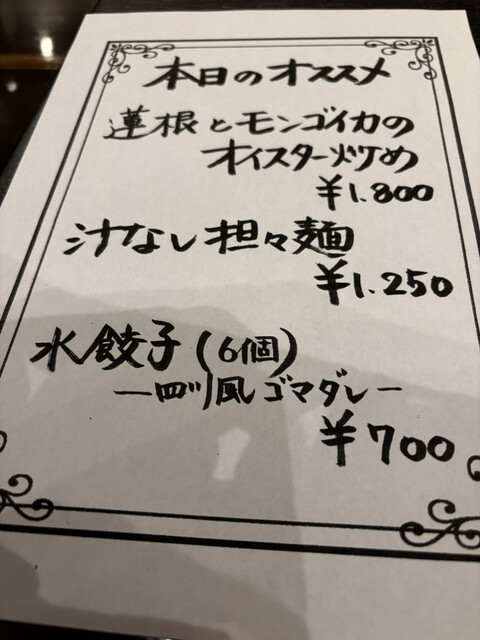 本日のオススメ
蓮根とモンゴイカの
オイスター炒め
¥1.800
汁なし担々麺
¥1.250
水餃子(6個)
ー四川風ゴマダレー
¥700